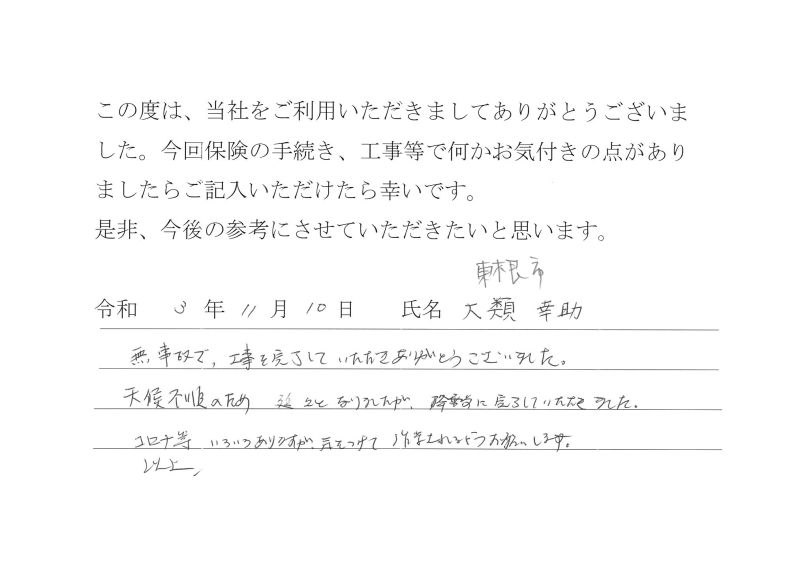 この度は、当社をご利用いただきましてありがとうございま
した。今回保険の手続き、工事等で何かお気付きの点があり
ましたらご記入いただけたら幸いです。
是非、今後の参考にさせていただきたいと思います。
東根市
令和 3 年 11 月 10 日 氏名 大類 幸助
無事故で、工事を完了して いただきありがとうございました。
天候不順のため となりましたが、降雪前に完了していただきました。
コロナ等 いろいろありますが、気をつけて 作業されるようお願いします。
以上、